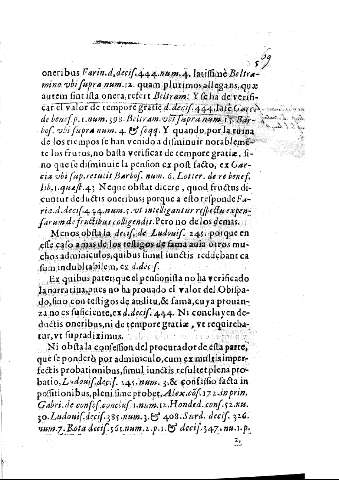 569
oneribus Farin.d.decis.444.num.4. latissimè Beltra-
mino vbi supra num.12. quam plurimos allegans, quæ
autem sint ista onera, refert Beltram. Y se ha de verifi-
car el valor de tempore gratiæ d. decis.444. late Garc.
de benef.p.1.num.398. Beltram. vbi supra num.15. Bar-
bos. vbi supra num. 4. & seqq. Y quando, por la ruina
de los tiempos se han venido a disminuir notableme-
te los frutos, no basta verificar de tempore gratiæ, si-
no que se disminuie la pension ex post facto, ex Gar-
cia vbi sup. retulit Barbos. num. 6. Lotter. de re benef.
lib.1.quæst.43 Ne que obstat dicere, quod fructus di-
cuntur deductis oneribus; porque a esto responde Fa-
rin.d.decis.444.num.5. vt intelligantur respectu expen-
sarum de fructibus colligendis. Pero no de los demas.
Menos obsta la decis. de Ludouis. 245. porque en
este caso a mas de los testigos de fama auia otros mu-
chos adminiculos, quibus simul iunctis reddebant ca
sum indubitabilem, ex d.decis.
Ex quibus patet que el pensionista no ha verificado
la narratiua, pues no ha prouado el valor del Obispa-
do, sino con testigos de auditu, & fama, cuya prouan-
za no es suficiente, ex d.decis.444. Ni concluyen de-
ductis oneribus, ni de tempore gratiæ, vt requireba-
tur, vt supra diximus.
Ni obsta la confession del procurador de esta parte,
que se ponderò por adminiculo, cum ex multis imper-
fectis probationibus, simul iunctis resultet plena pro-
batio, Ludouis. decis. 245. num. 3. & confissio facta in
positionibus, plenissime probet, Alex. cos. 172. in prin.
Gabri. de confes. conclus. 1. num. 12. Honded. cons. 52. nu.
30. Ludouis. decis. 385. num. 3. & 408. Surd. decis. 326.
num. 7. Rota decis. 561. num. 2. p. 1. & decis. 347. nu. 1. p.
2.